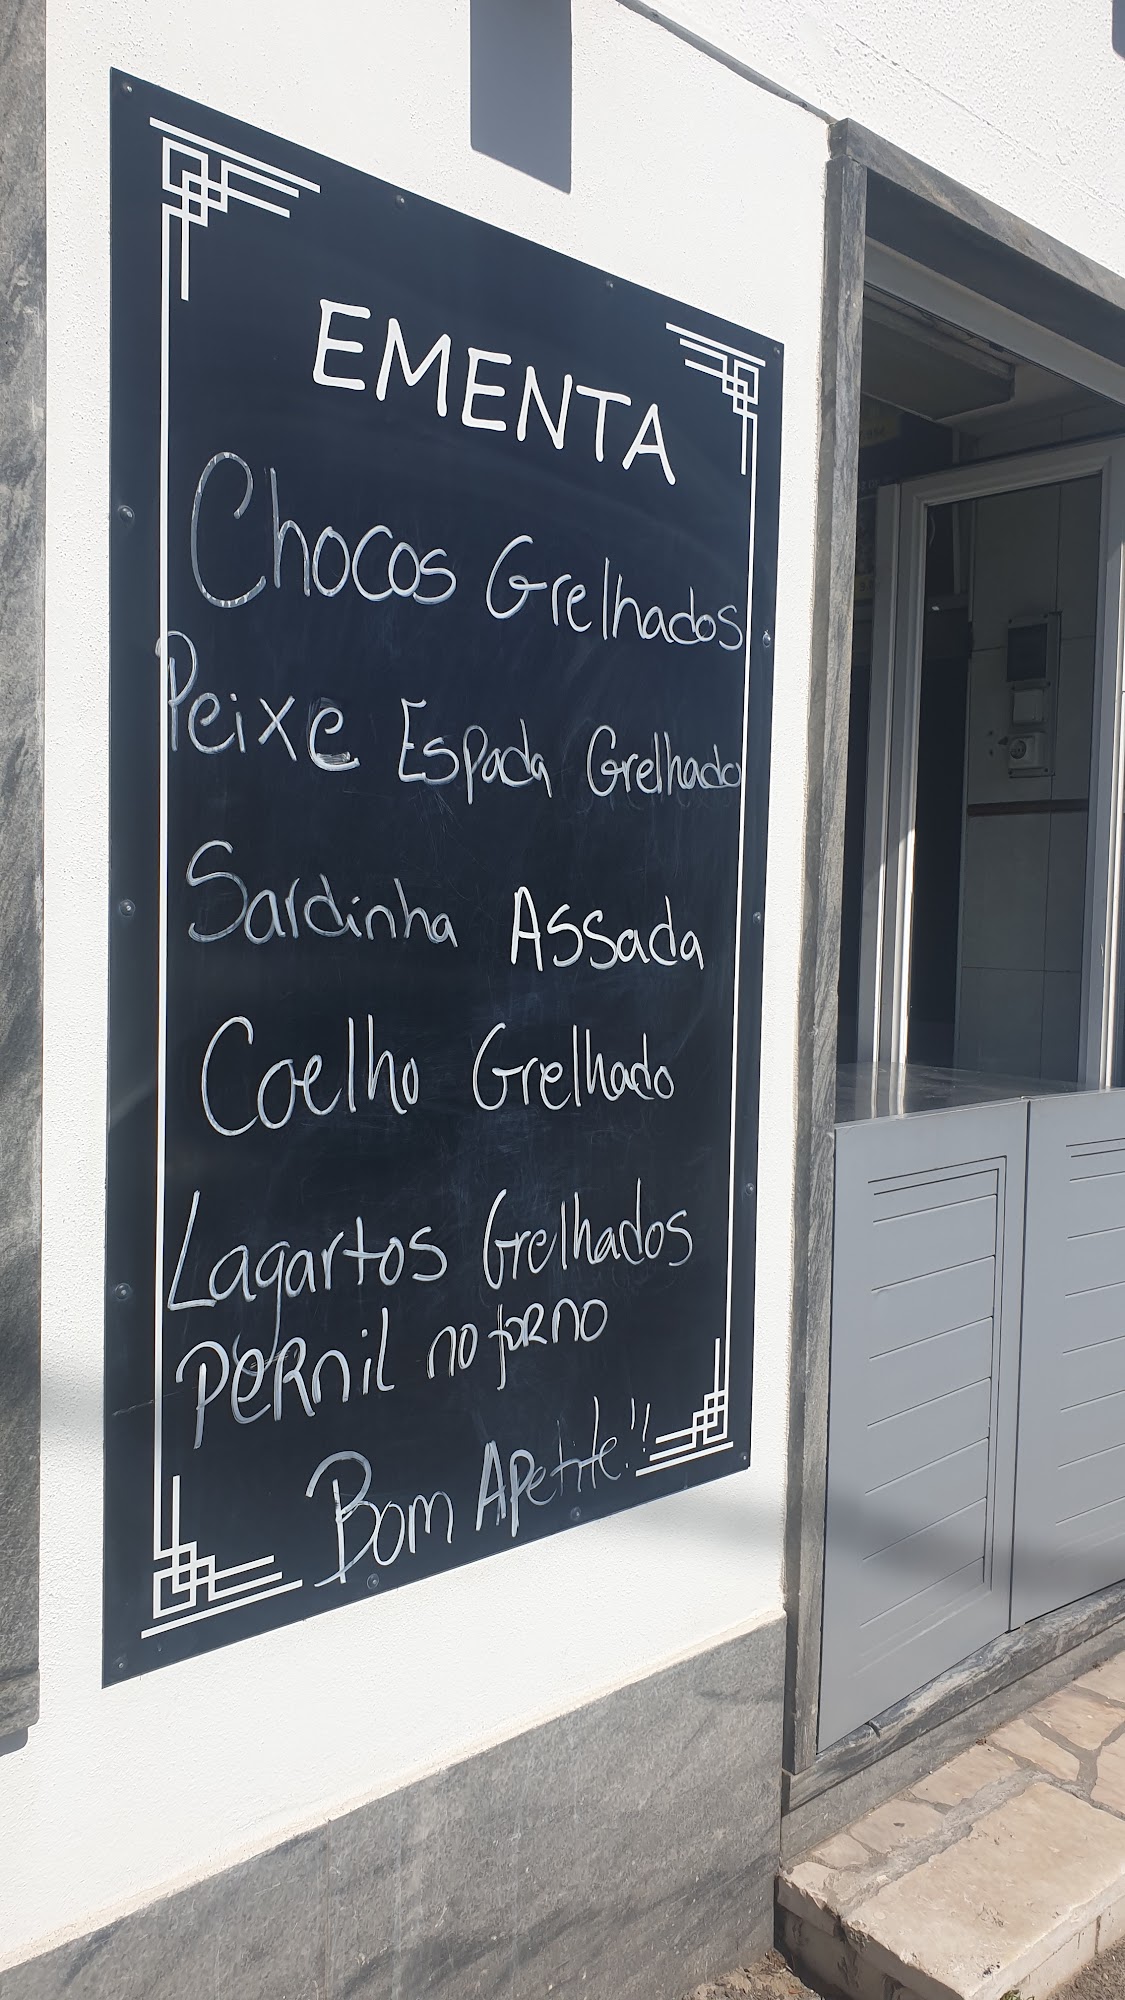 EMENTA
Chocos Grelhados
Peixe Espada Grelhado
Sardinha Assada
Coelho Grelhado
Lagartos Grelhados
PERnil no forno
Bom Apetite!!